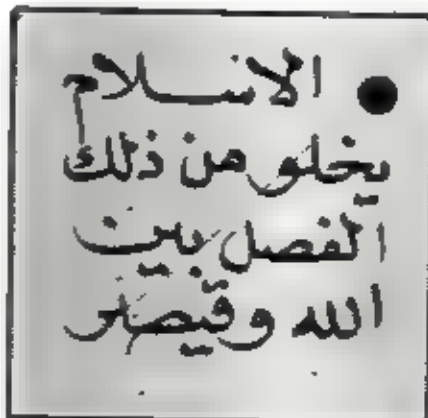 ● الاسلام
يخلو من ذلك
الفصل بين
الله وقيصر